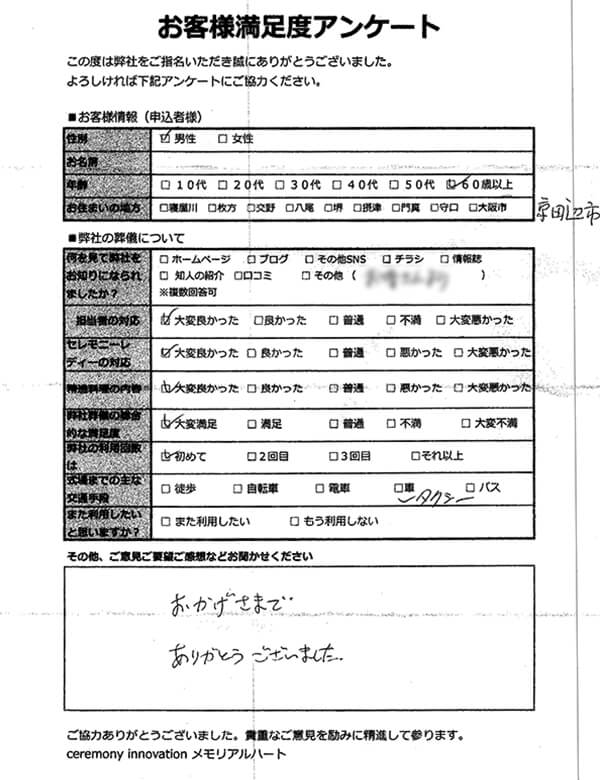 お客様満足度アンケート
この度は弊社をご指名いただき誠にありがとうございました。
よろしければ下記アンケートにご協力ください。
■お客様情報(申込者様)
性別 ☑男性 □女性
お名前
年齢 □10代 □20代 □30代 □40代 □50代 ☑60歳以上
お住まいの地方 □寝屋川 □枚方 □交野 □八尾 □堺 □摂津 □門真 □守口 □大阪市 京田辺市
■弊社の葬儀について
何を見て弊社を □ホームページ □ブログ □その他SNS □チラシ □情報誌
お知りになられ □知人の紹介 □口コミ □その他( )
ましたか? ※複数回答可
担当者の対応 ☑大変良かった □良かった □普通 □不満 □大変悪かった
セレモニーレ
ディーの対応 ☑大変良かった □良かった □普通 □悪かった □大変悪かった
精進料理の内容 ☑大変良かった □良かった □普通 □悪かった □大変悪かった
弊社葬儀の総合
的な満足度 ☑大変満足 □満足 □普通 □不満 □大変不満
弊社の利用回数
は ☑初めて □2回目 □3回目 □それ以上
式場までの主な
交通手段 □徒歩 □自転車 □電車 □車 □バス
✓タクシー
また利用したい
と思いますか? □また利用したい □もう利用しない
その他、ご意見ご要望ご感想などお聞かせください
おかげさまで
ありがとうございました.
ご協力ありがとうございました。貴重なご意見を励みに精進して参ります。
ceremony innovation メモリアルハート